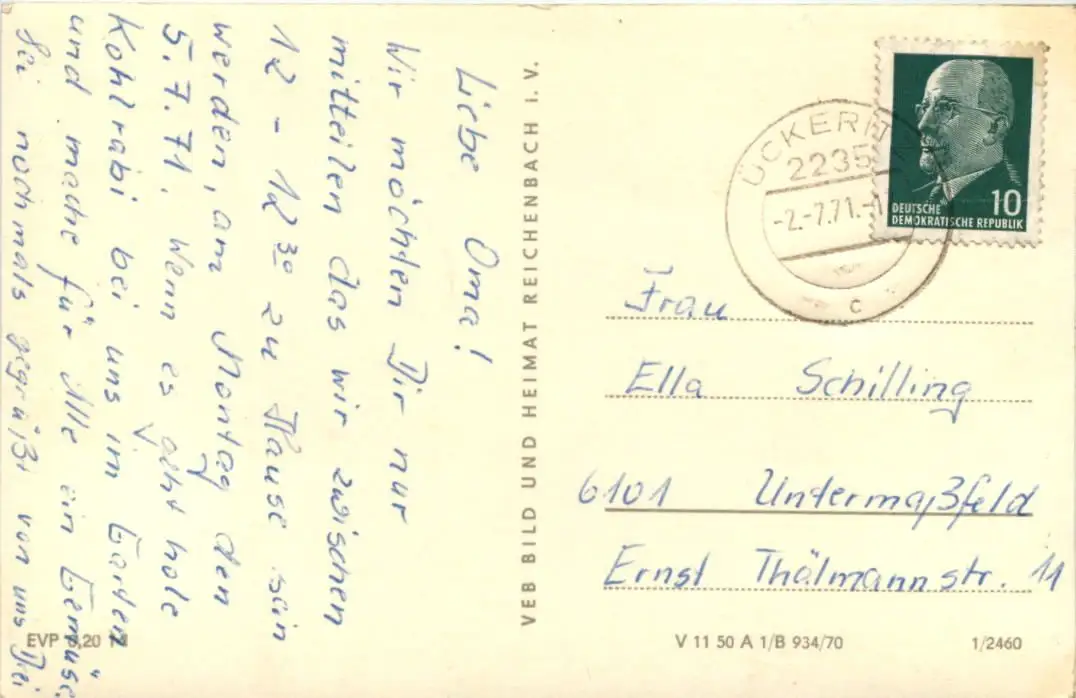 Liebe Oma!
Wir möchten Dir nur
mitteilen das wir zwischen
12 - 12³⁰ zu Hause sein
werden, am Montag den
5.7.71. Wenn es geht hole
Kohlrabi bei uns im Garten
und mache für Alle ein Gemüse.
Sei nochmals gegrüßt von uns Drei
EVP 0,20 M
VEB BILD UND HEIMAT REICHENBACH I. V.
ÜCKERITZ
2235
-2.-7.71.-1
c
10
DEUTSCHE
DEMOKRATISCHE REPUBLIK
Frau
Ella Schilling
6101 Untermaßfeld
Ernst Thälmannstr. 11
V 11 50 A 1/B 934/70
1/2460